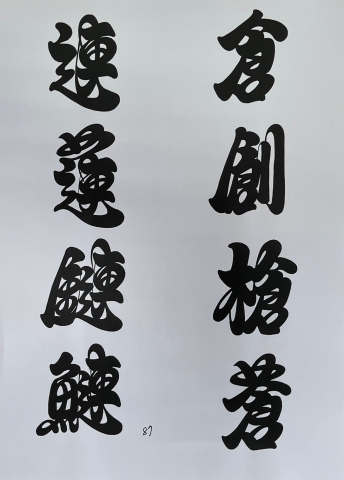 倉創槍蒼
連蓮鏈鰱
87